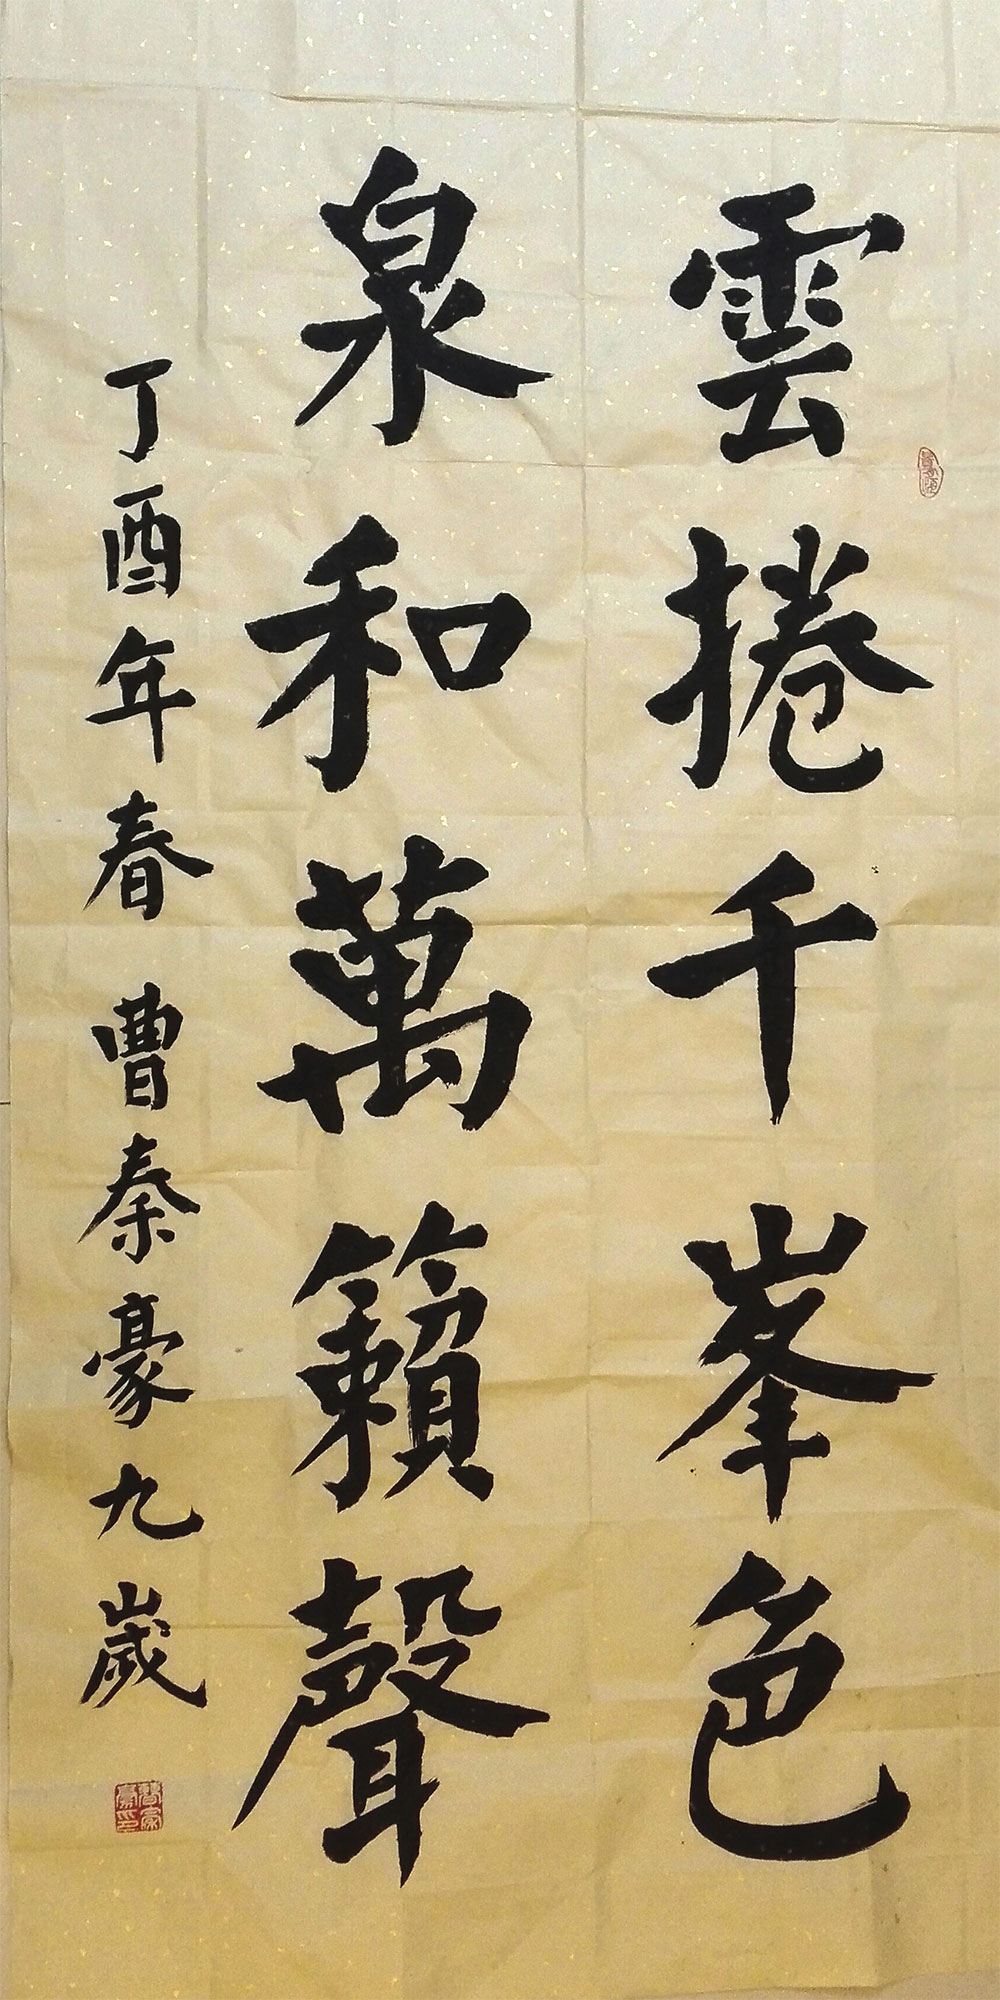 雲捲千峯色
泉和萬籟聲
丁酉年春 曹秦豪九歲